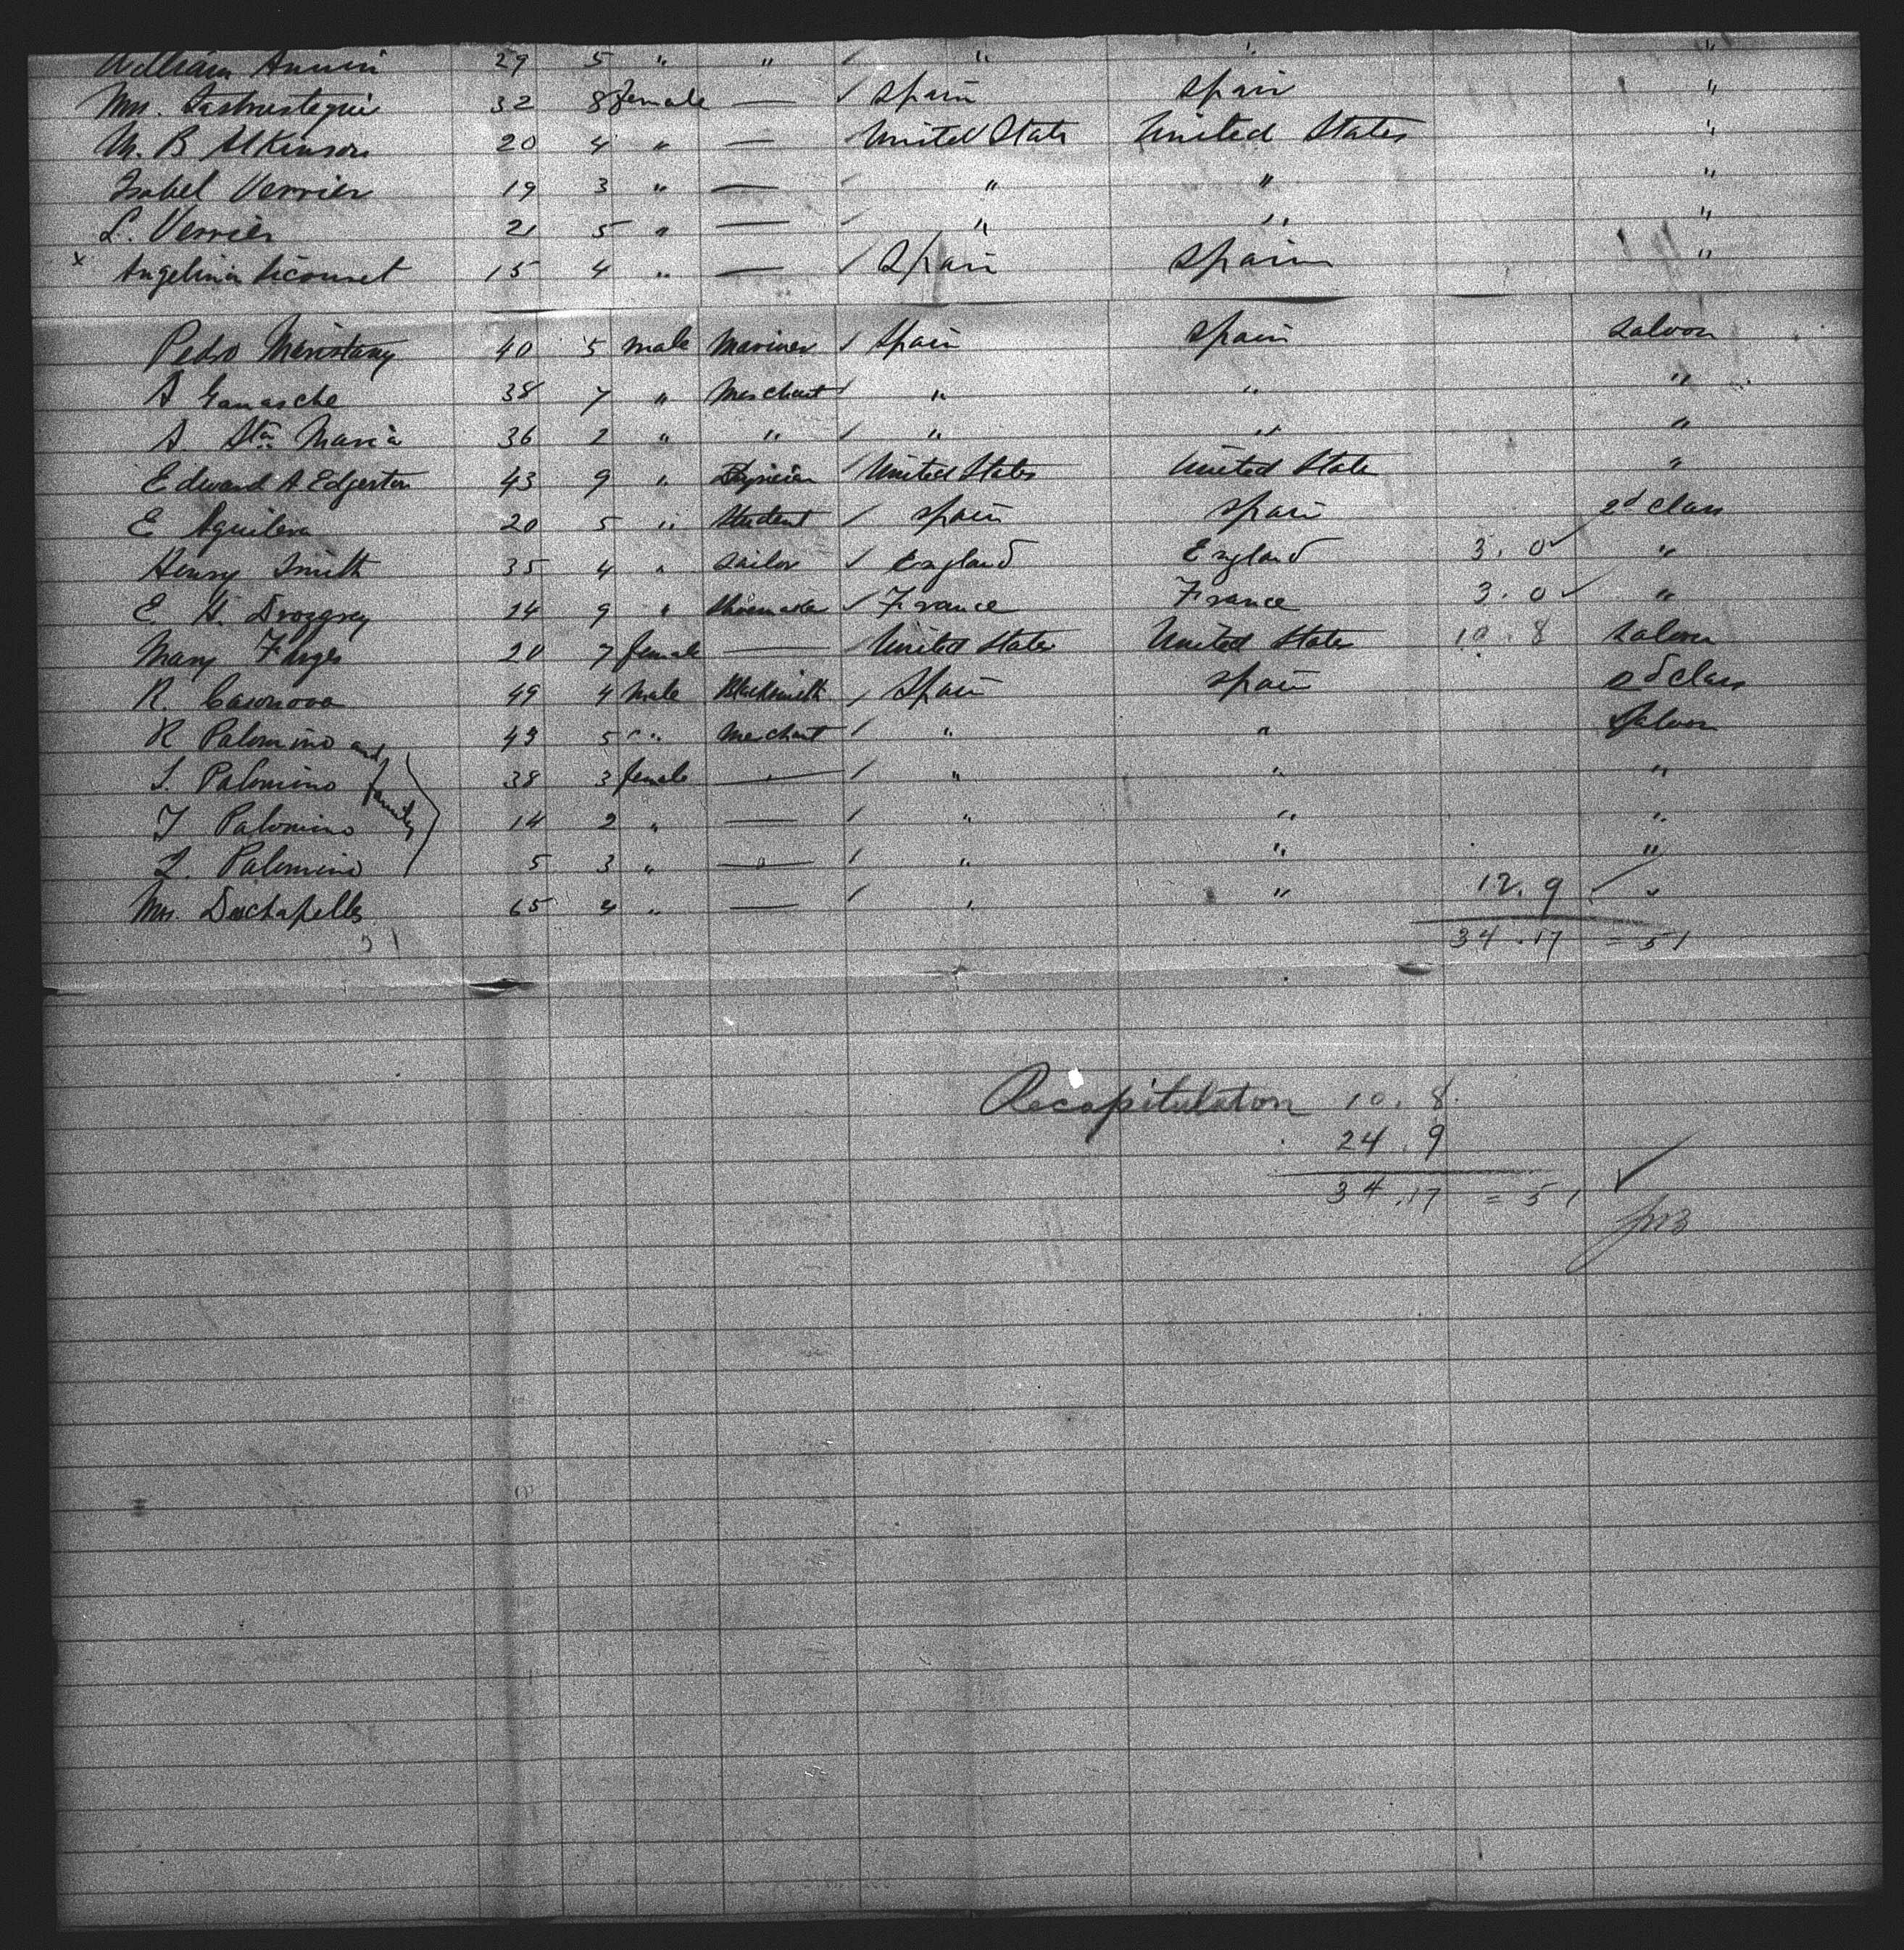 William 29 5 " " " " "
Mrs. 32 8 female — Spain Spain "
M. B Atkinson 20 4 " — United State United States "
Isabel Verrier 19 3 " — " " "
L. Verrier 21 5 " — " " "
x Angelina 15 4 " — Spain Spain "
Pedro Maristany 40 5 male Mariner Spain Spain Saloon
A Ganasche 38 7 " Merchant " " "
A. Sta Maria 36 2 " " " " "
Edward A Edgerton 43 9 " United States United State "
E Aguilera 20 5 " Student Spain Spain 2d Class
Henry Smith 35 4 " Sailor England England 3. 0 "
E. H. 24 9 " Shoemaker France France 3. 0 "
Mary 20 7 female — United States United States 10. 8 Saloon
R. Casonova 49 4 Male Blacksmith Spain Spain 2d Class
R Palomino and family 43 5 " Merchant " " Saloon
S. Palomino 38 3 female — " " "
J Palomino 14 2 " — " " "
L. Palomino 5 3 " — " " "
Mrs. Duchapelles 65 4 " — " " 12. 9 "
34 . 17 = 51
Recapitulaton 10. 8.
24 . 9
34 . 17 = 51